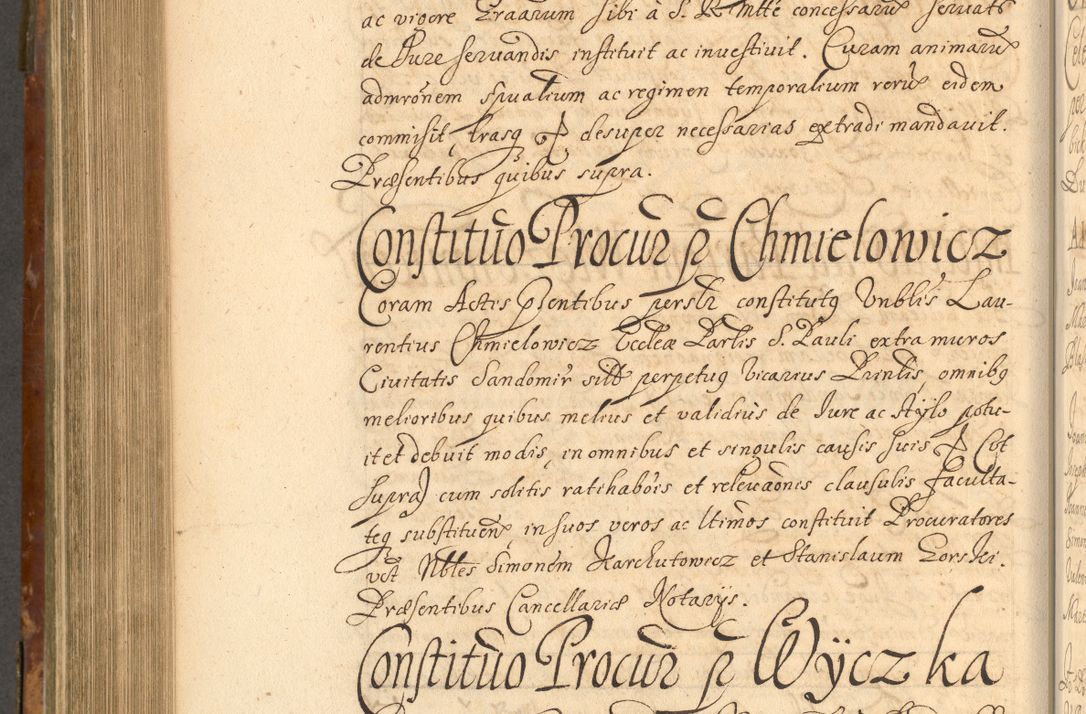 ac vigore Graarum sibi à S. R. Mtte concessarũ servats
de Iure servandis instituit ac investivit. Curam animarũ
admrõnem spualium ac regimen temporalium rerũ eidem
commisit, lrasq desuper necessarias extradi mandavit.
Præsentibus quibus supra.
Constitũo Procur p Chmielowicz
Coram Actis pzentibus persłr constitutq Vnblis Lau-
rentius Chmielowicz Eccleæ Parlis S. Pauli extra muros
Civitatis Sandomir sitt perpetuq Vicarius Prinlis, omnibq
melioribus quibus melius et validius de Iure ac stylo potu-
it et debuit modis, in omnibus et singulis causis suis (ut
supra) cum solitis ratihabõis et relevaõnis clausulis faculta-
teq substituenḍ, in suos veros ac ltimos constituit Procuratores
vdt Nbles Simonem Karchutowicz et Stanislaum Gorski.
Præsentibus Cancellariæ Notarijs.
Constitũo Procur p Wÿczka